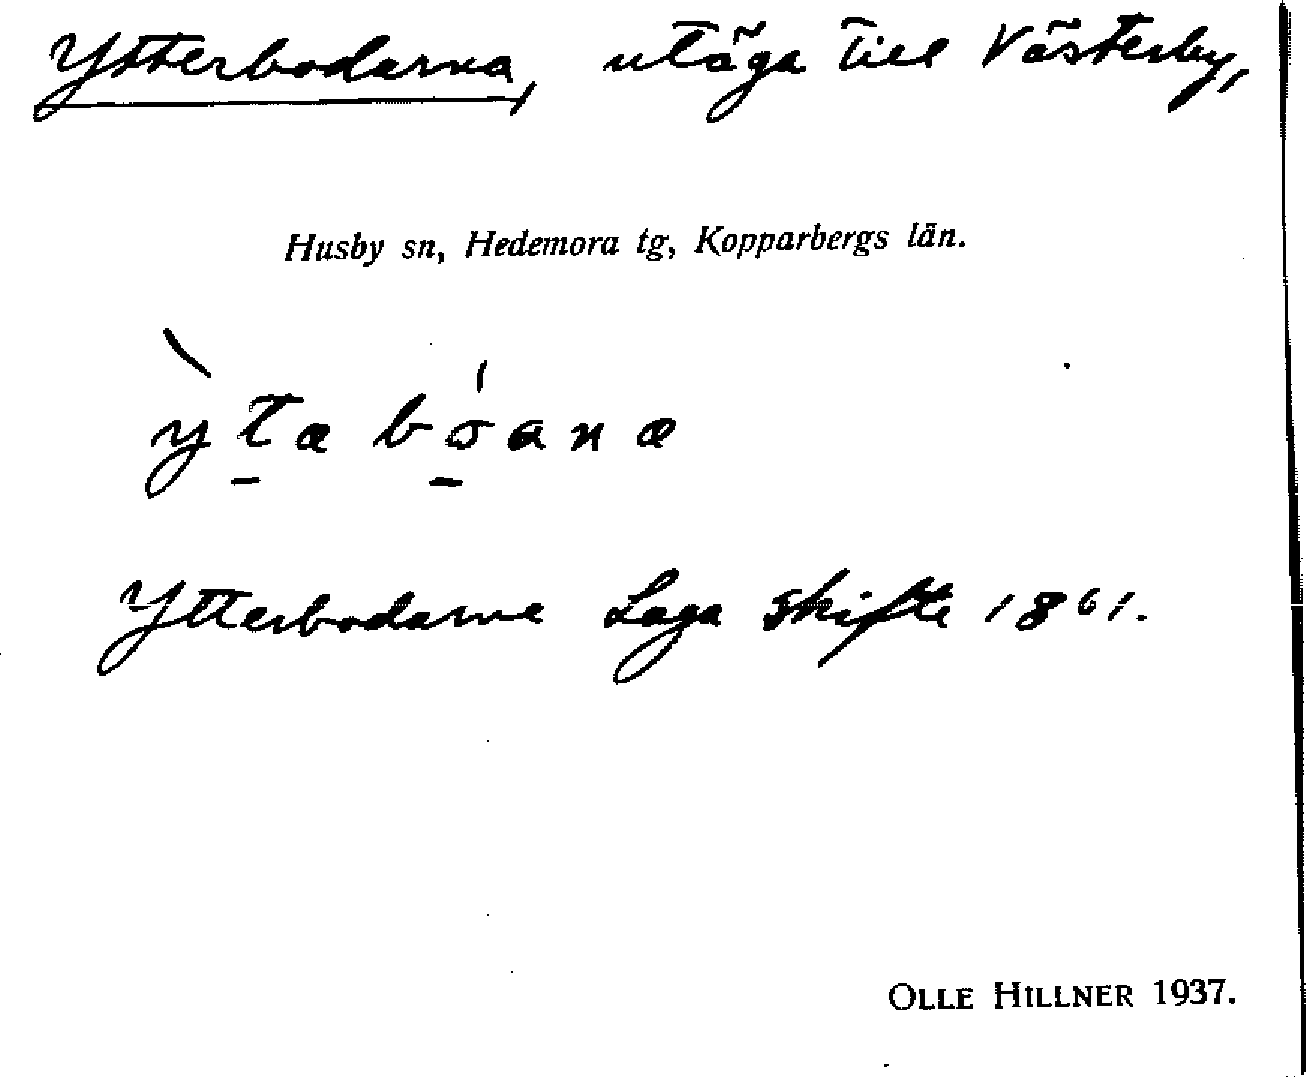 Ytterbodarna, utäga till Västerby,
Husby sn, Hedemora tg, Kopparbergs län.
ỳt̠a bσ̠́ana
Ytterbodarne Laga skifte 1861.
OLLE HILLNER 1937.